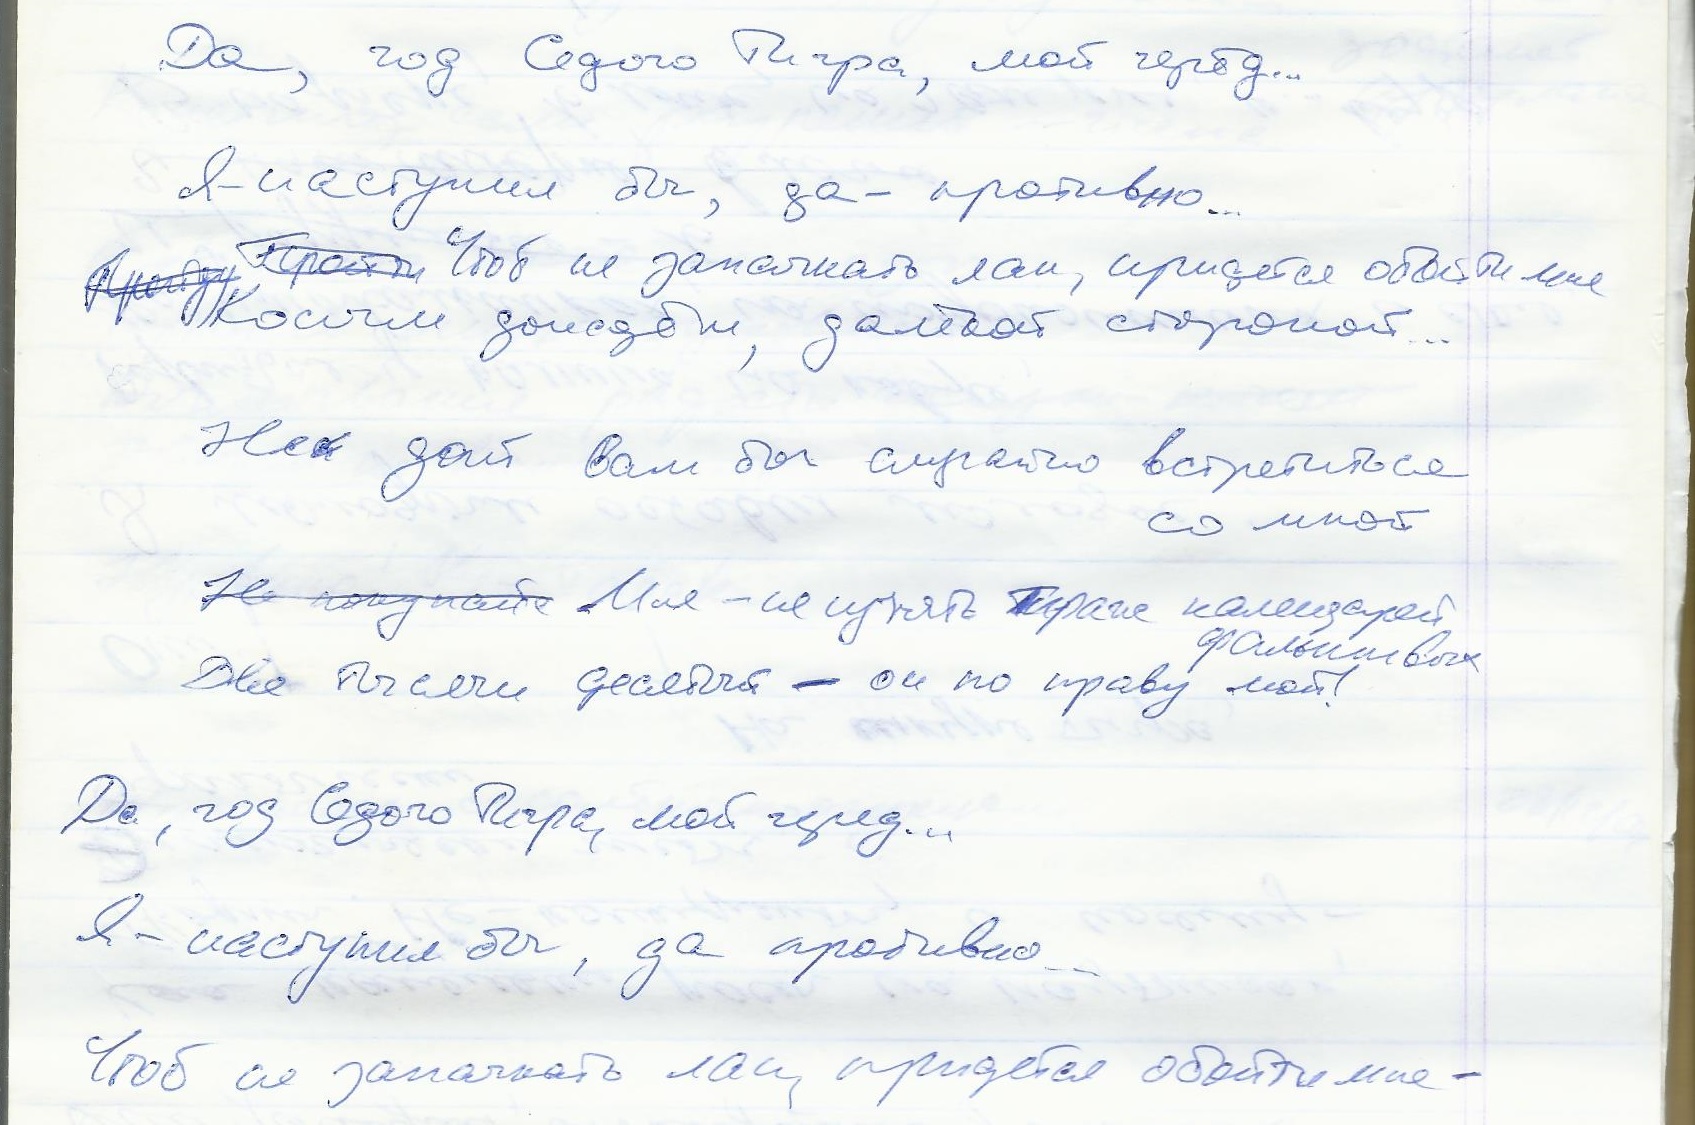 Да, год Седого Тигра, мой черёд...
Я - наступил бы, да - противно...
Пройду Пройти Чтоб не запачкать лап, придётся обойти мне
Косым дождём, далёкой стороной...
Не дай Вам бы случайно встретиться
со мной
Не покупайте Мне - не нужны календарей
фальшивых
Две тысячи десятый - он по праву мой!
Да, год Седого Тигра, мой черед...
Я - наступил бы, да противно...
Чтоб не запачкать лап, придётся обойти мне -